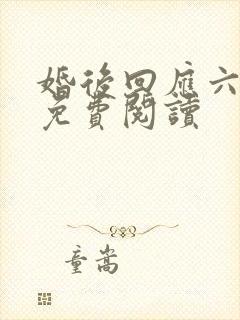 婚後回應六
免費閱讀
童嵩